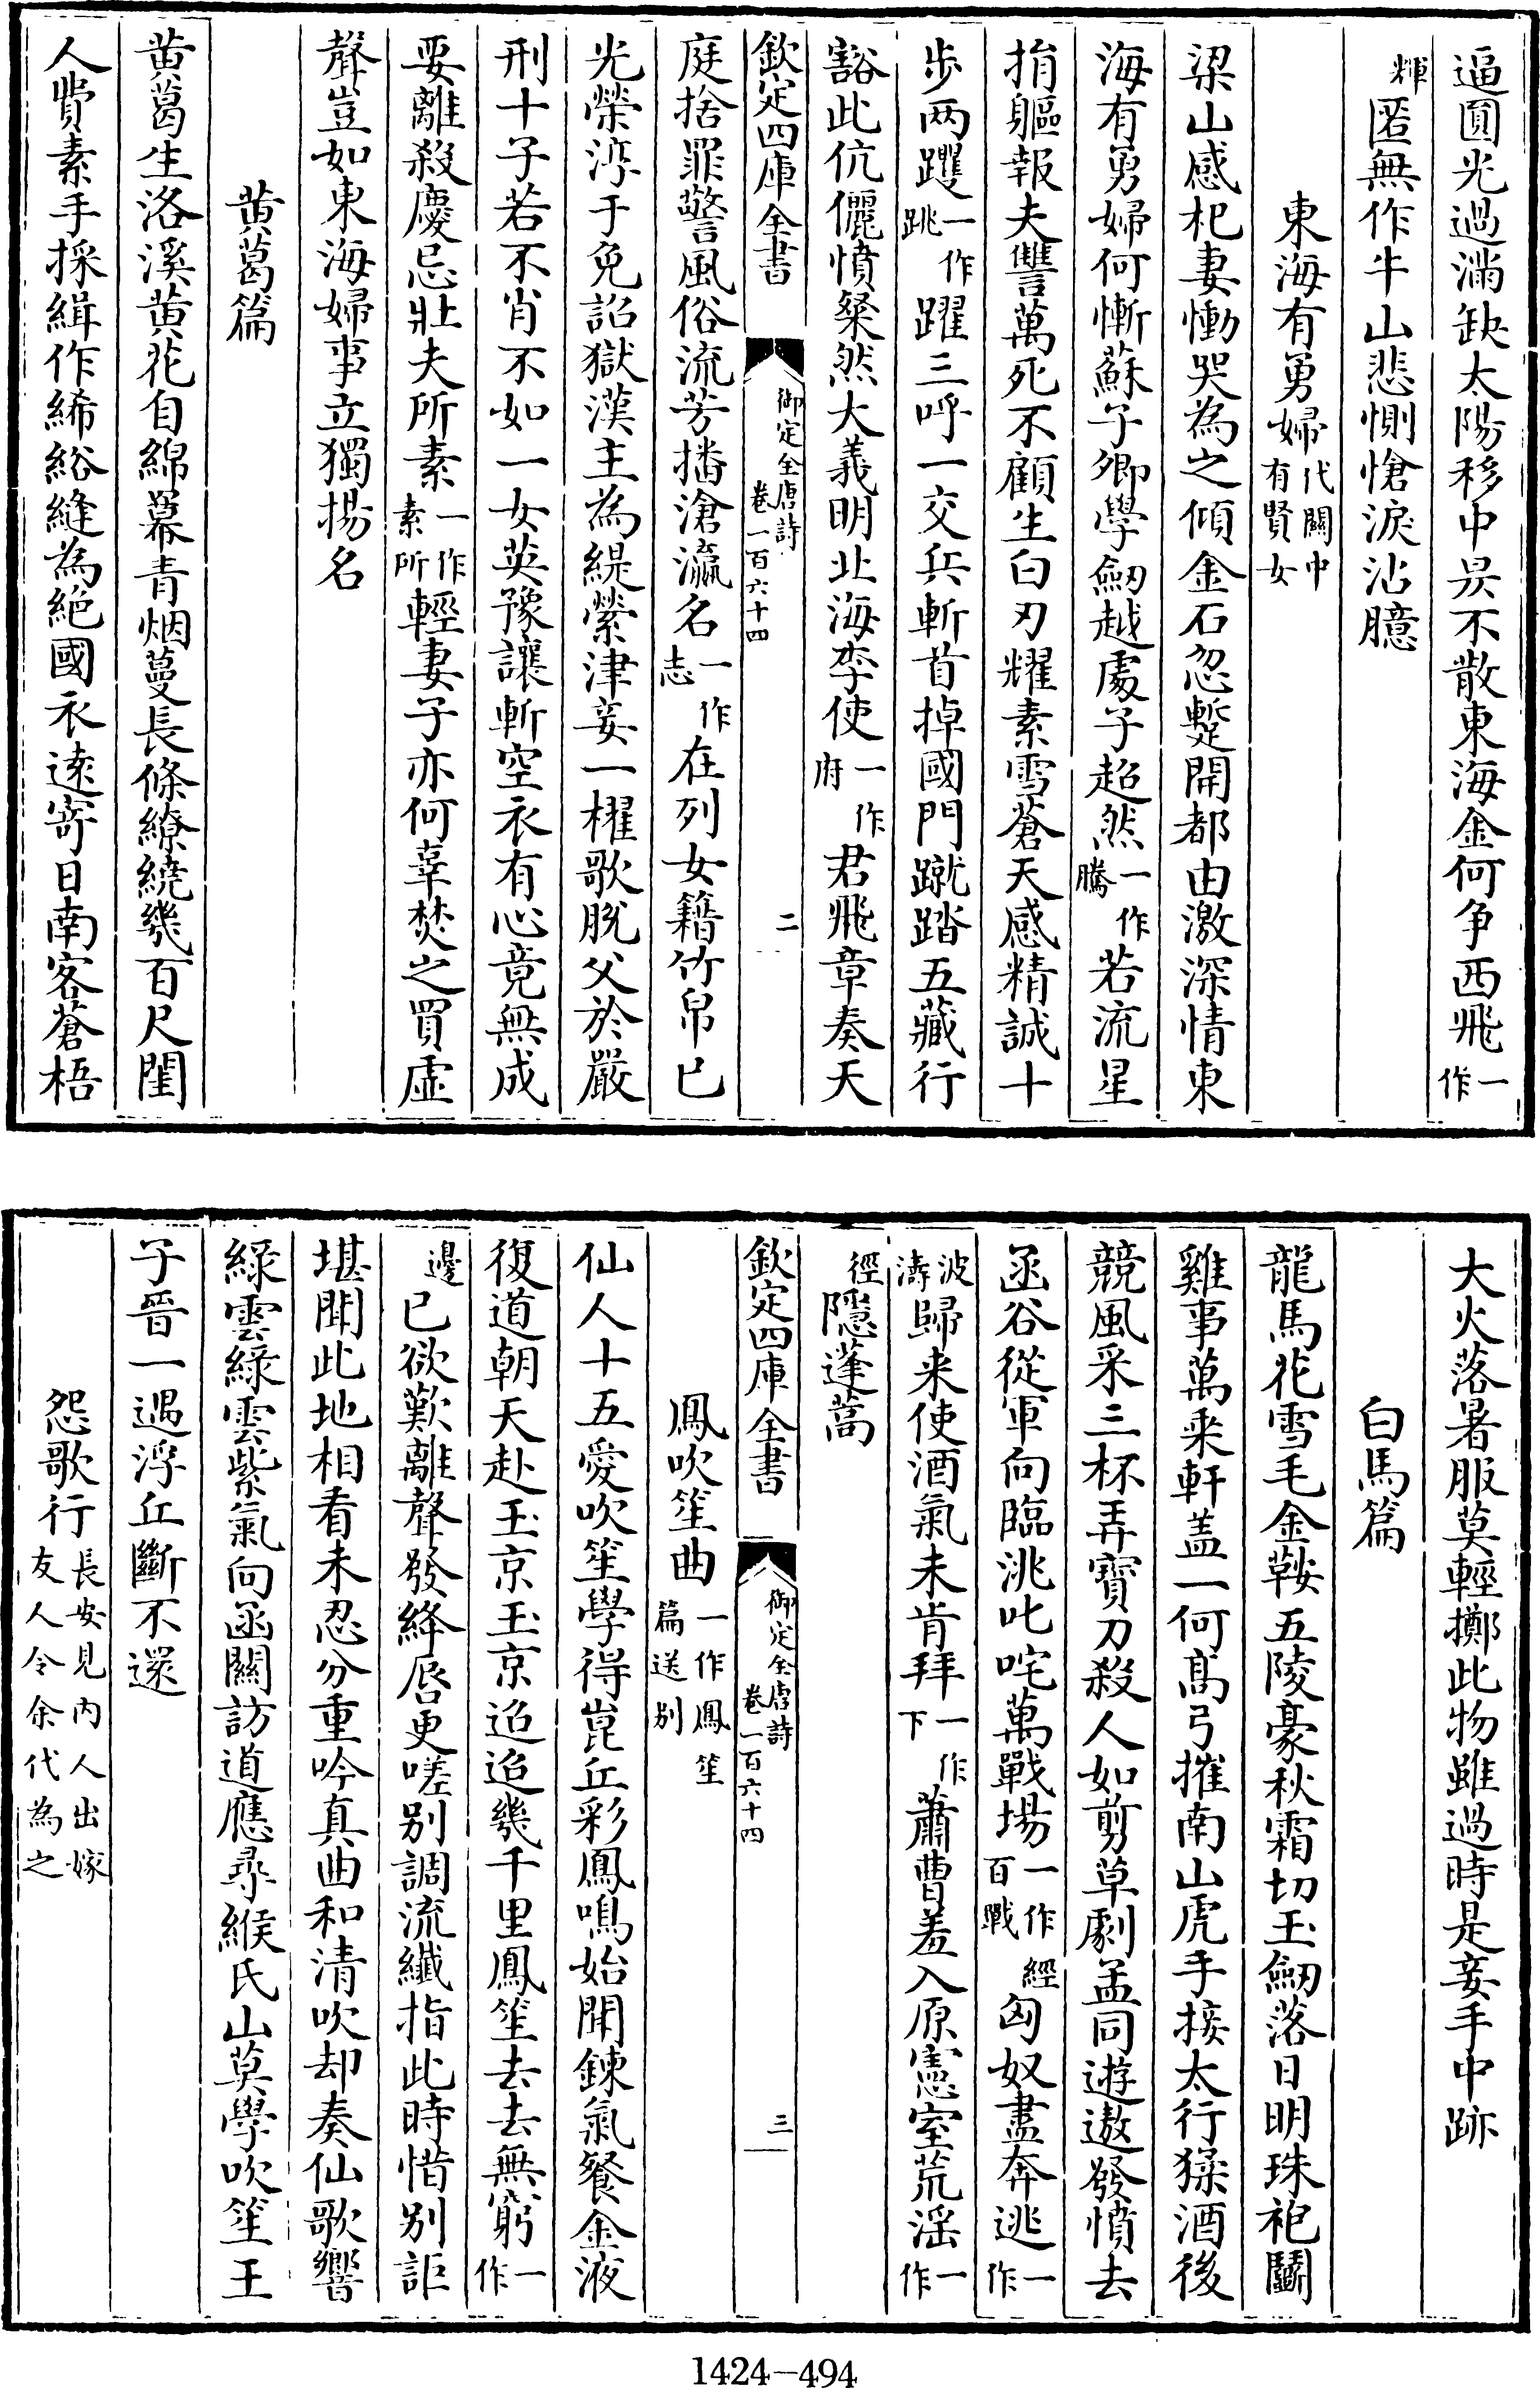 逼圓光過滿缺太陽移中昃不散東海金何争西飛一作
輝匿無作牛山悲惻愴淚沾臆
東海有勇婦代關中有賢女
梁山感杞妻慟哭為之傾金石忽蹔開都由激深情東
海有勇婦何慚蘇子卿學劒越處子超然一作騰若流星
捐軀報夫讐萬死不顧生白刃耀素雪蒼天感精誠十
步两躩一作跳躍三呼一交兵斬首掉國門蹴踏五藏行
豁此伉儷憤粲然大義明北海李使一作府君飛章奏天
欽定四庫全書 御定全唐詩卷一百六十四 二
庭捨罪警風俗流芳播滄瀛名一作志在列女籍竹帛已
光榮淳于免詔獄漢主為緹縈津妾一櫂歌脱父於嚴
刑十子若不肖不如一女英豫讓斬空衣有心竟無成
要離殺慶忌壯夫所素一作素所輕妻子亦何辜焚之買虚
聲豈如東海婦事立獨揚名
黄葛篇
黄葛生洛溪黄花自綿羃青烟蔓長條繚繞幾百尺閨
人費素手採緝作絺綌縫為絶國衣逺寄日南客蒼梧
大火落暑服莫輕擲此物雖過時是妾手中跡
白馬篇
龍馬花雪毛金鞍五陵豪秋霜切玉劒落日明珠袍鬭
雞事萬乘軒盖一何髙弓摧南山虎手接太行猱酒後
競風采三杯弄寶刀殺人如剪草劇孟同遊遨發憤去
函谷從軍向臨洮叱咤萬戰場一作百戰經匈奴盡奔逃一作
波濤歸来使酒氣未肯拜一作下蕭曹羞入原憲室荒淫一作
徑隱蓬蒿
欽定四庫全書 御定全唐詩卷一百六十四 三
鳳吹笙曲一作鳳笙篇送别
仙人十五愛吹笙學得崑丘彩鳳鳴始聞鍊氣餐金液
復道朝天赴玉京玉京迢迢幾千里鳳笙去去無窮一作
邊已欲歎離聲發絳唇更嗟别調流纖指此時惜别詎
堪聞此地相看未忍分重吟真曲和清吹却奏仙歌響
緑雲緑雲紫氣向函關訪道應尋緱氏山莫學吹笙王
子晉一遇浮丘斷不還
怨歌行長安見内人出嫁友人令余代為之
1424-494